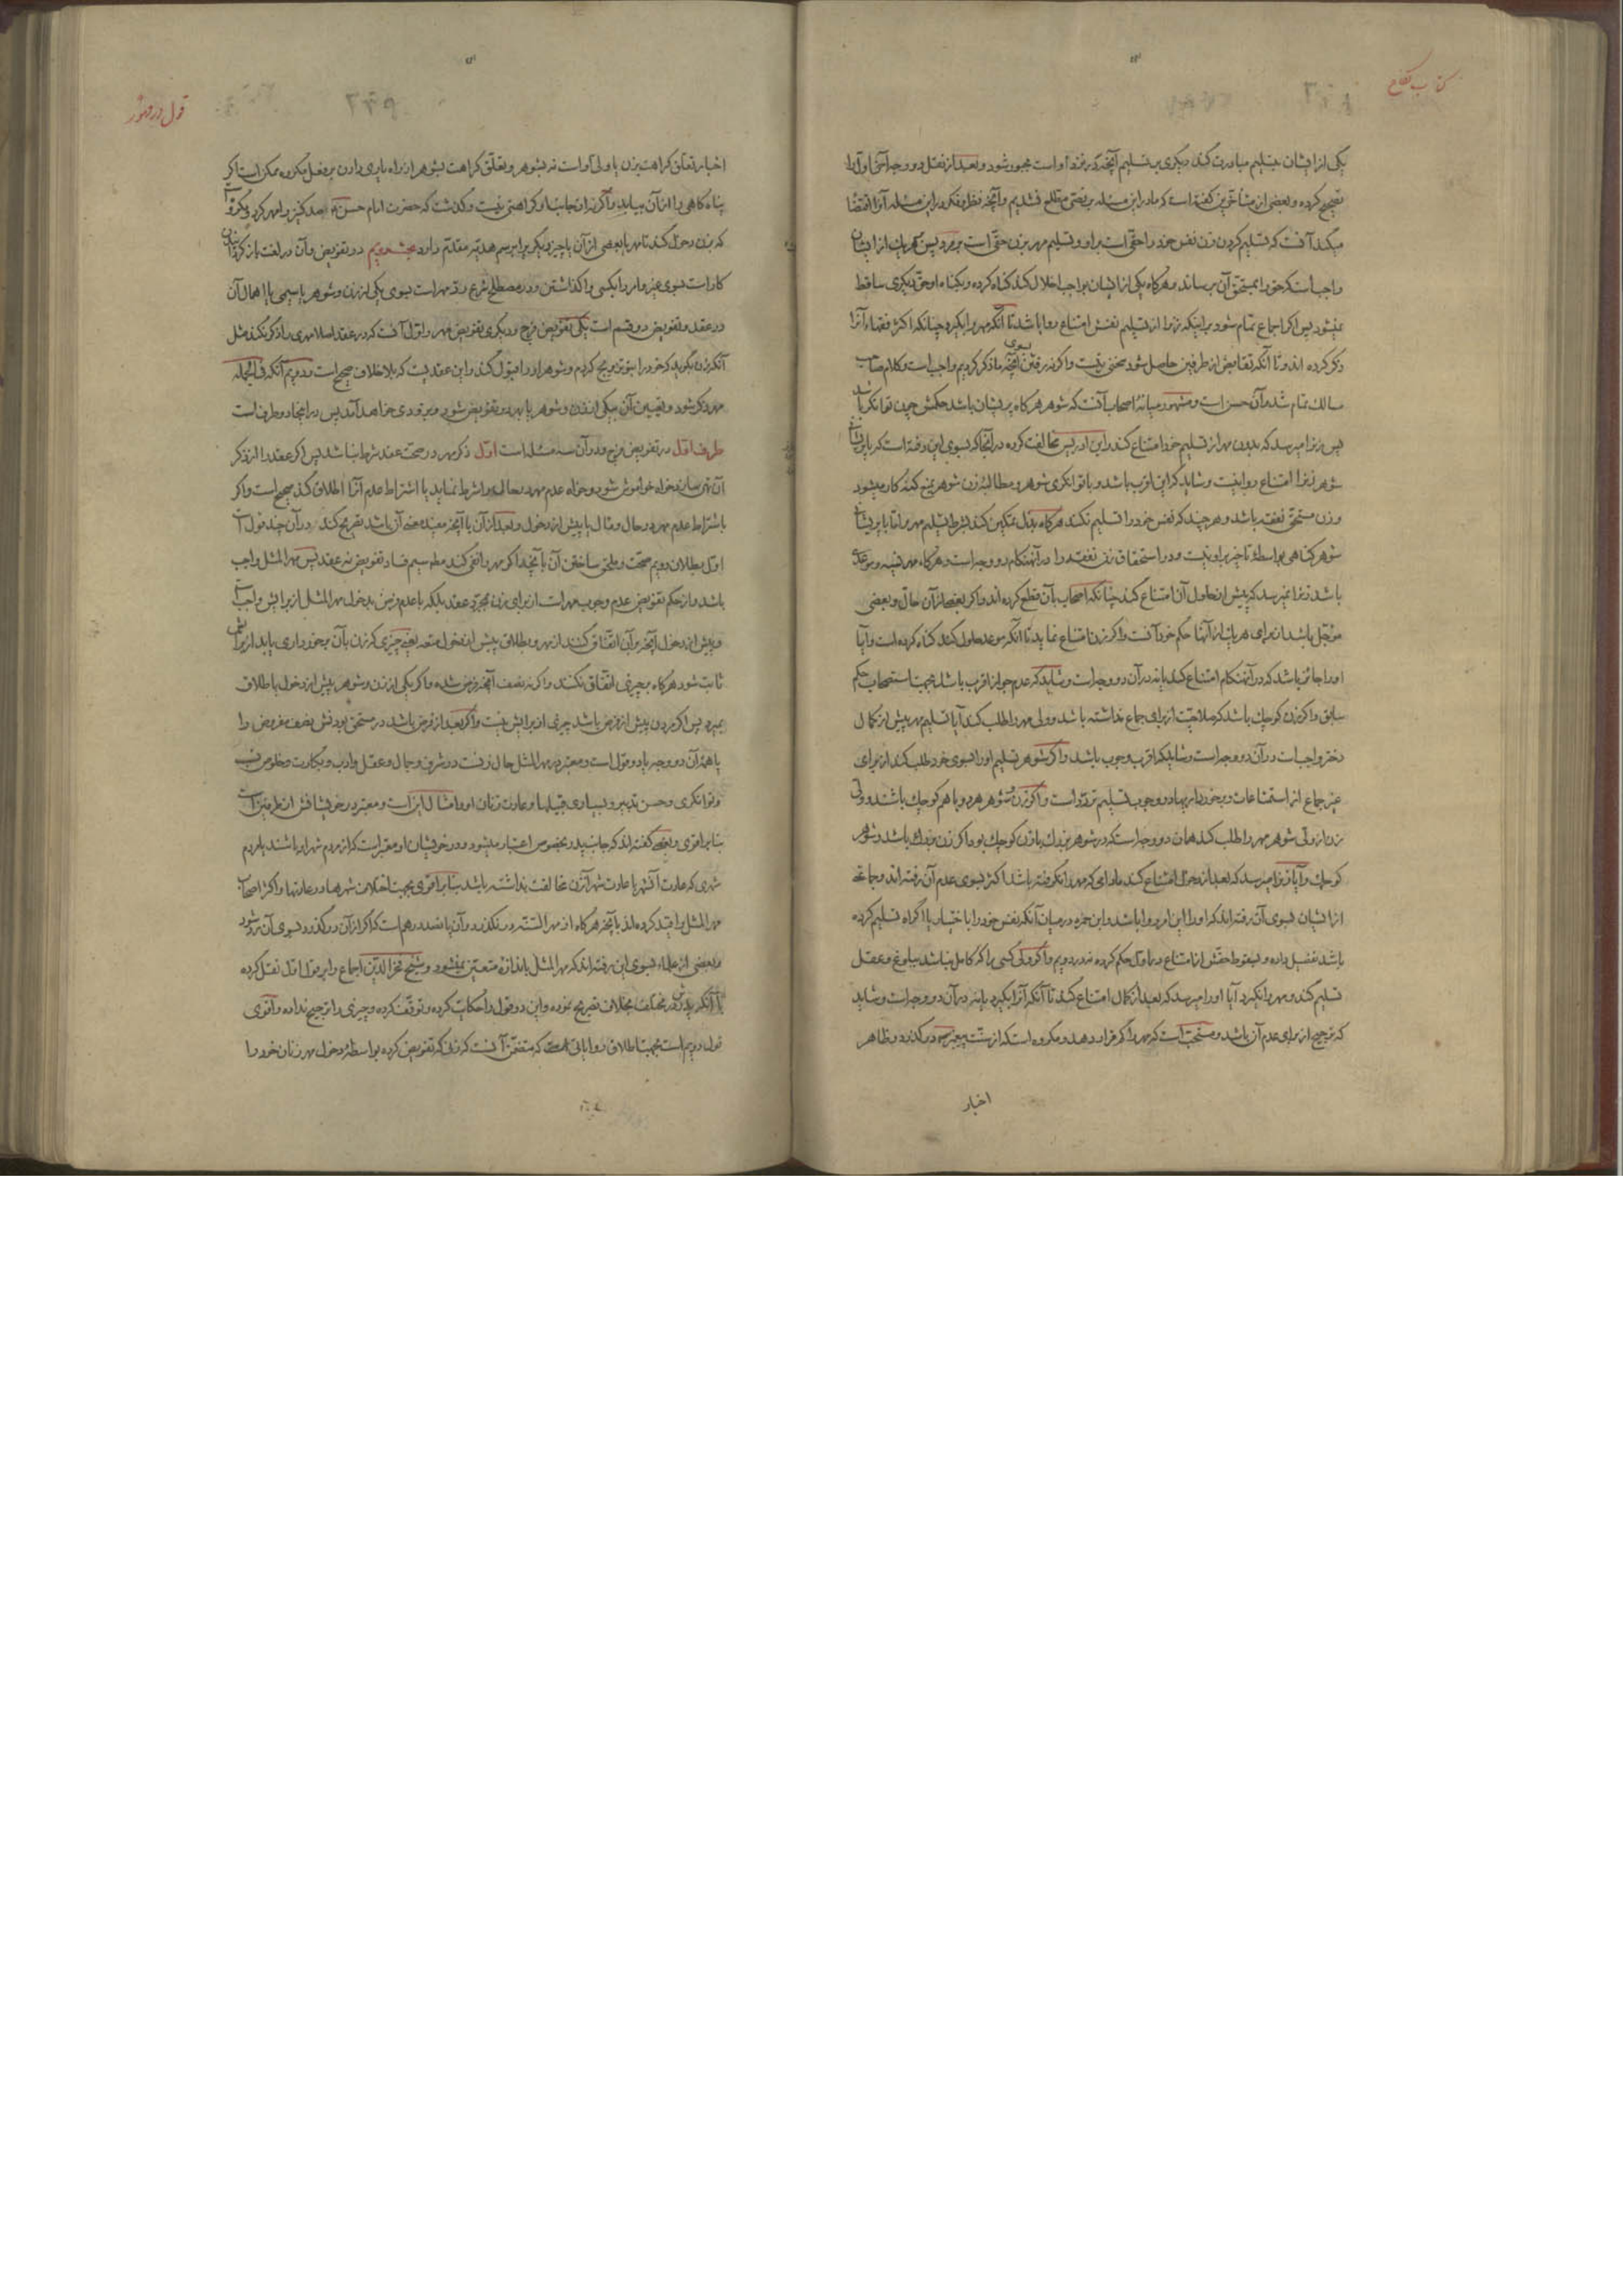 کتاب نکاح
یکی از ایشان بتسلیم مبادرت کند دیگری بر تسلیم آنچه در نزد او است مجبور شود و بعد از نقل دو وجه آخر اول را
تصحیح کرده و بعضی از متأخرین گفته است که ما در این مسئله بر نصی مطلع نشدیم و آنچه نظر و فکر در این مسئله آنرا اقتضا
میکند آنست که تسلیم کردن زن نفس خود را حقی است بر او و تسلیم مهر بزن حقی است بر مرد پس هر یک از ایشان
واجب است که حق را بمستحق آن برساند و هرگاه یکی از ایشان بواجب اخلال کند گناه کرده و بگناه او حق دیگری ساقط
نمیشود پس اگر اجماع تمام شود بر اینکه زنرا از تسلیم نفسش امتناع روا باشد تا آنکه مهر را بگیرد چنانکه اکثر فقهاء آنرا
ذکر کرده اند و تا آنکه تقابض از طرفین حاصل شود سخنی نیست و اگر نه رفتن بسوی آنچه ما ذکر کردیم واجب است و کلام صاحب
مسالک تمام شد و آن حسن است و مشهور میانهٔ اصحاب آنست که شوهر هرگاه پریشان باشد حکمش چون توانگر باشد
پس زنرا میرسد که بدون مهر از تسلیم خود امتناع کند و ابن ادریس مخالفت کرده در آنجا که بسوی این رفته است که با پریشانی
شوهر زنرا امتناع روا نیست و شاید که این اقرب باشد و با توانگری شوهر و مطالبهٔ زن شوهر بمنع گنه کار میشود
و زن مستحق نفقه باشد و هر چند که نفس خود را تسلیم نکند هرگاه بذل تمکین کند بشرط تسلیم مهر و اما با پریشانی
شوهر گناهی بواسطهٔ تأخیر بر او نیست و در استحقاق زن نفقه را در آنهنگام دو وجه است و هرگاه مهر نسیه و بوعده
باشد زنرا نمیرسد که پیش از حلول آن امتناع کند چنانکه اصحاب بآن قطع کرده اند و اگر بعض از آن حال و بعضی
مؤجل باشد از برای هر یک از آنها حکم خود آنست و اگر زن امتناع نماید تا آنکه موعد حلول کند گناه کرده است و آیا
او را جائز باشد که در آنهنگام امتناع کند یا نه در آن دو وجه است و شاید که عدم جواز اقرب باشد بجهت استصحاب حکم
سابق و اگر زن کوچک باشد که صلاحیت از برای جماع نداشته باشد و ولی مهر را طلب کند آیا تسلیم مهر پیش از کمال
دختر واجب است در آن دو وجه است و شاید که اقرب وجوب باشد و اگر شوهر تسلیم او را بسوی خود طلب کند از برای
غیر جماع از استمتاعات و برخوردار بها در وجوب تسلیم تردد است و اگر زن و شوهر هر دو با هم کوچک باشند و ولی
زن از ولی شوهر مهر را طلب کند همان دو وجه است که در شوهر بزرگ با زن کوچک بود و اگر زن بزرگ باشد و شوهر
کوچک و آیا زنرا میرسد که بعد از دخول امتناع کند مادامی که مهر را نگرفته باشد اکثر بسوی عدم آن رفته اند و جماعتی
از ایشان بسوی آن رفته اند که او را این امر روا باشد و ابن حمزه در میان آنکه نفس خود را باختیار یا اکراه تسلیم کرده
باشد تفصیل داده و بسقوط حقش از امتناع در اول حکم کرده نه در دویم و اگر ولی کسی را که کامل نباشد ببلوغ و عقل
تسلیم کند و مهر را نگیرد آیا او را میرسد که بعد از کمال امتناع کند تا آنکه آنرا بگیرد یا نه در آن دو وجه است و شاید
که ترجیح از برای عدم آن باشد و مستحب است که مهر را کم قرار دهد و مکروه است که از سنت پیغمبر ص در گذرد و ظاهر
اخبار
قول در مهور
اخبار تعلق کراهت بزن یا ولی او است نه بشوهر و تعلق کراهت بشوهر از راه یاری دادن بر فعل مکروه ممکن است اگر
پناه گاهی را از آن بیابد و اگر نه از جانب او کراهتی نیست و گذشت که حضرت امام حسن ع صد کنیز را مهر کرد و مکروه است
که بزن دخول کند تا مهر یا بعضی از آن یا چیز دیگر را برسم هدیه مقدم دارد بحث دویم در تفویض و آن در لغت باز گردانیدن
کار است بسوی غیر و امر را بکسی واگذاشتن و در مصطلح شرع رد مهر است بسوی یکی از زن و شوهر یا سیمی یا اهمال آن
در عقد و تفویض دو قسم است یکی تفویض فرج و دیگری تفویض مهر و اول آنست که در عقد اصلا مهری را ذکر نکند مثل
آنکه زن بگوید که خود را بتو تزویج کردم و شوهر او را قبول کند و این عقدیست که بلا خلاف صحیح است و دویم آنکه فی الجمله
مهر ذکر شود و تعیین آن بیکی از زن و شوهر یا بهر دو تفویض شود و بزودی خواهد آمد پس در اینجا دو طرف است
طرف اول در تفویض فرج و در آن سه مسئله است اول ذکر مهر در صحت عقد شرط نباشد پس اگر عقد را از ذکر
آن تهی سازد خواه فراموش شود و خواه عدم مهر در حال را شرط نماید یا اشتراط عدم آنرا اطلاق کند صحیح است و اگر
باشتراط عدم مهر در حال و مآل یا پیش از دخول و بعد از آن یا آنچه مفید معنی آن باشد تصریح کند در آن چند قول است
اول بطلان دویم صحت و ملحق ساختن آن بآنچه اگر مهر را نفی کند مطلق سیم فساد تفویض نه عقد پس مهر المثل واجب
باشد و از حکم تفویض عدم وجوب مهر است از برای زن بمجرد عقد بلکه با عدم فرض بدخول مهر المثل از برایش واجب است
و پیش از دخول آنچه بر آن اتفاق کنند از مهر و بطلاق پیش از دخول متعه یعنی چیزی که زن بآن برخورداری یابد از برایش
ثابت شود هرگاه بر چیزی اتفاق نکنند و اگر نه نصف آنچه فرض شده و اگر یکی از زن و شوهر پیش از دخول یا طلاق
بمیرد پس اگر مردن پیش از فرض باشد چیزی از برایش نیست و اگر بعد از فرض باشد در مستحق بودنش نصف مفروض را
یا همهٔ آن دو وجه یا دو قول است و معتبر در مهر المثل حال زنست در شرف و جمال و عقل و ادب و بکارت و خلوص نسب
و توانگری و حسن تدبیر و بسیاری قبیلها و عادت زنان او و امثال این است و معتبر در خویشانش از طرفین است
بنا بر اقوی و بعضی گفته اند که جانب پدر بخصوص اعتبار میشود و در خویشان او معتبر است که از مردم شهر او باشند یا مردم
شهری که عادت آنشهر با عادت شهر آنزن مخالفت نداشته باشد بنا بر اقوی بجهت اختلاف شهرها در عادتها و اکثر اصحاب
مهر المثل را قید کرده اند بآنچه هرگاه از مهر السنه در نگذرد و آن پانصد درهم است که اگر از آن در گذرد بسوی آن رد شود
و بعضی از علماء بسوی این رفته اند که مهر المثل باندازهٔ متعین نمیشود و شیخ فخر الدین اجماع را بر قول اول نقل کرده
با آنکه پدرش در مختلف بخلاف تصریح نموده و این دو قول را حکایت کرده و توقف کرده و چیزی را ترجیح نداده و اقوی
قول دویم است بجهت اطلاق روایاتی که متضمن آنست که زنی که تفویض کرده بواسطهٔ دخول مهر زنان خود را